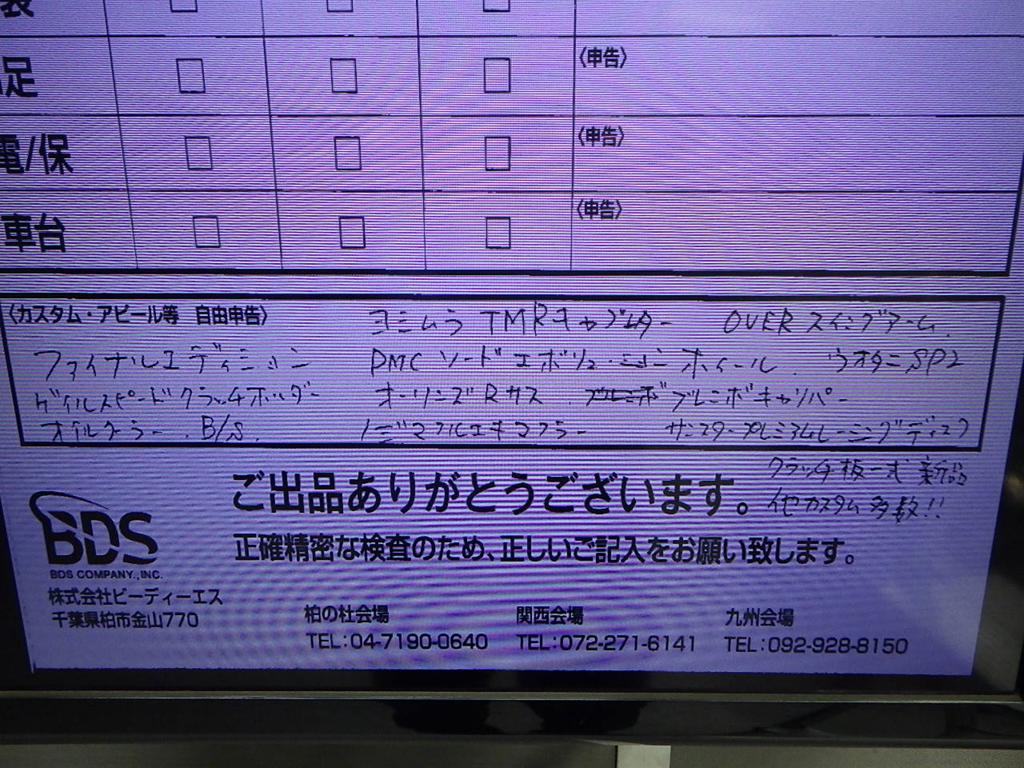 装
足 〈申告〉
電/保 〈申告〉
車台 〈申告〉
〈カスタム・アピール等 自由申告〉 ヨシムラ TMRキャブレター OVER スイングアーム.
ファイナルエディション PMC ソードエボリューション ホイール. ウオタニSP2
ゲイルスピードクラッチホルダー オーリンズRサス. ブレンボキャリパー
オイルクーラー. B/S. ノジマフルエキマフラー サンスタープレミアムレーシングディスク
クラッチ板一式 新品
他カスタム多数!!
ご出品ありがとうございます。
正確精密な検査のため、正しいご記入をお願い致します。
BDS
BDS COMPANY.,INC.
株式会社ビーディーエス
千葉県柏市金山770
柏の杜会場 関西会場 九州会場
TEL:04-7190-0640 TEL:072-271-6141 TEL:092-928-8150